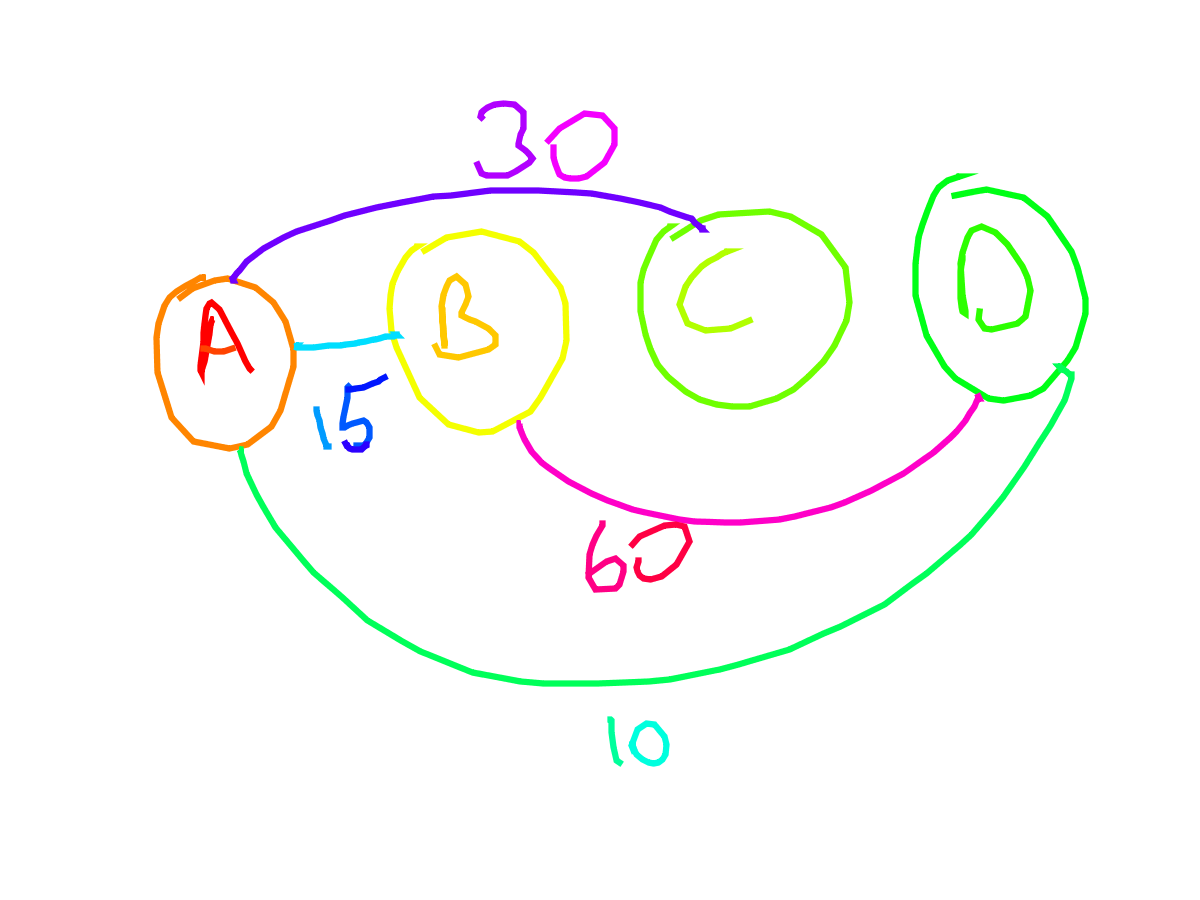 30
A B C D
15
60
10